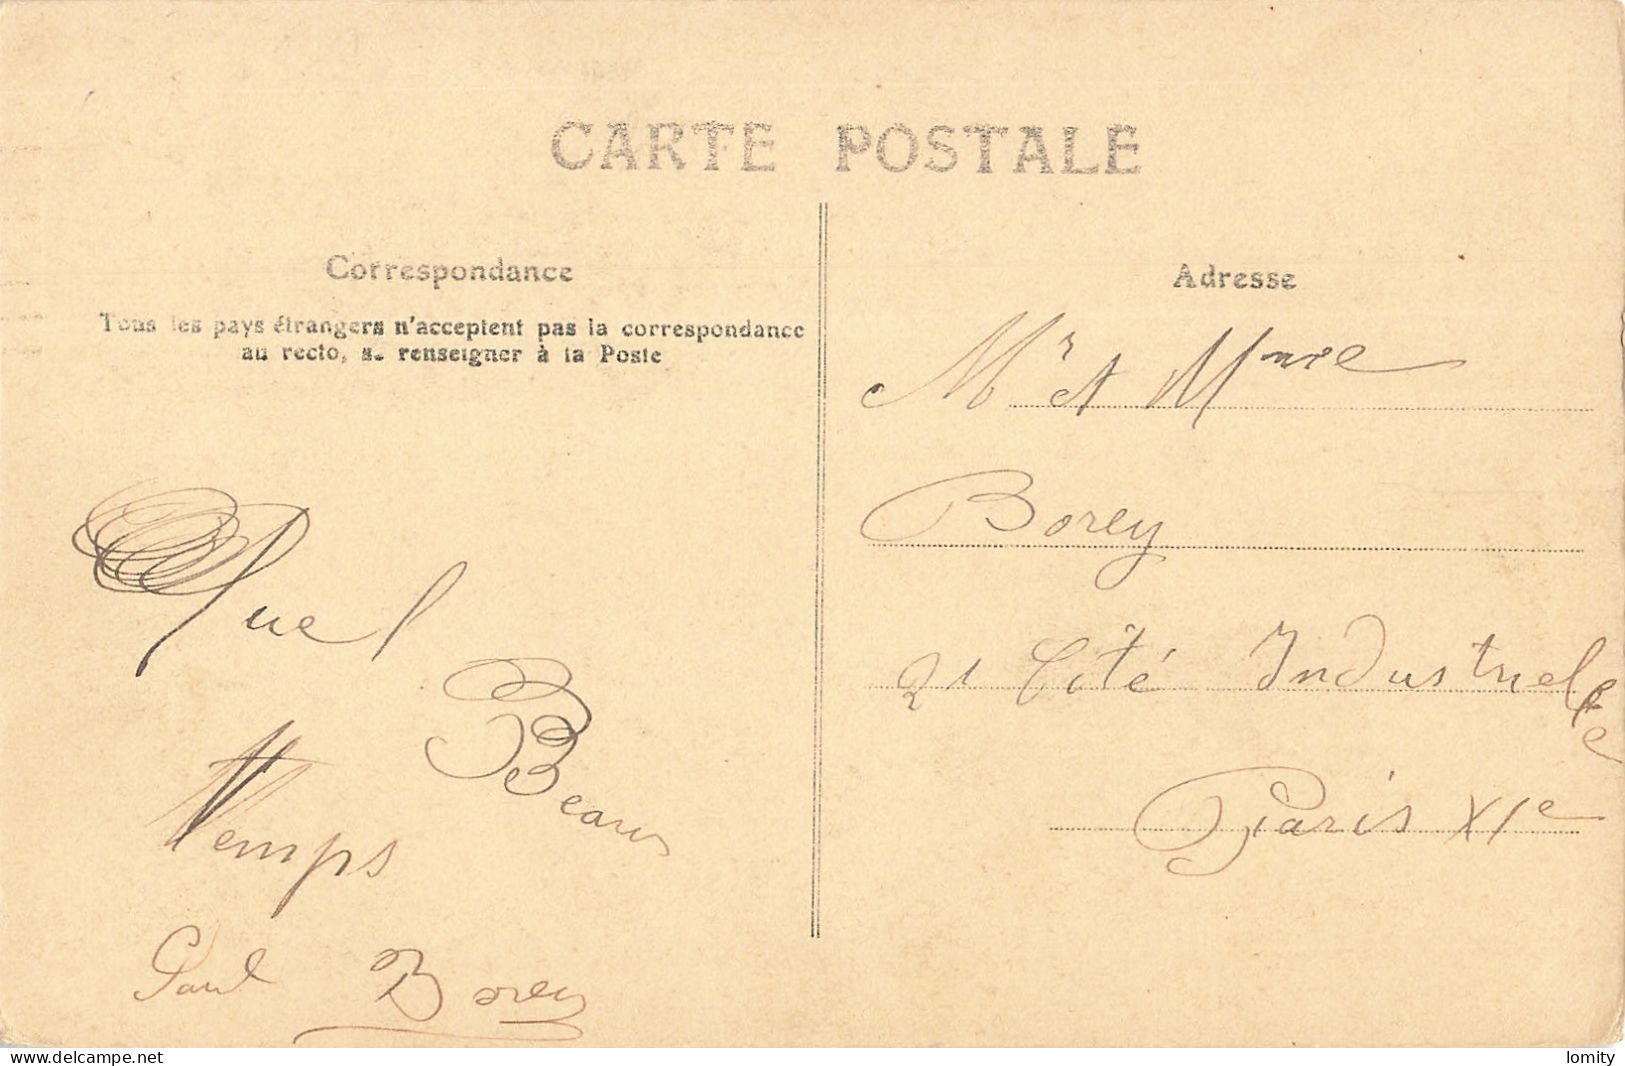 CARTE POSTALE
Correspondance
Tous les pays étrangers n'acceptent pas la correspondance
au recto, se renseigner à la Poste
Quel
Beau
Temps
Paul Borey
Adresse
Mr et Mme
Borey
21 Cité Industrielle
Paris XIe
www.delcampe.net
lomity